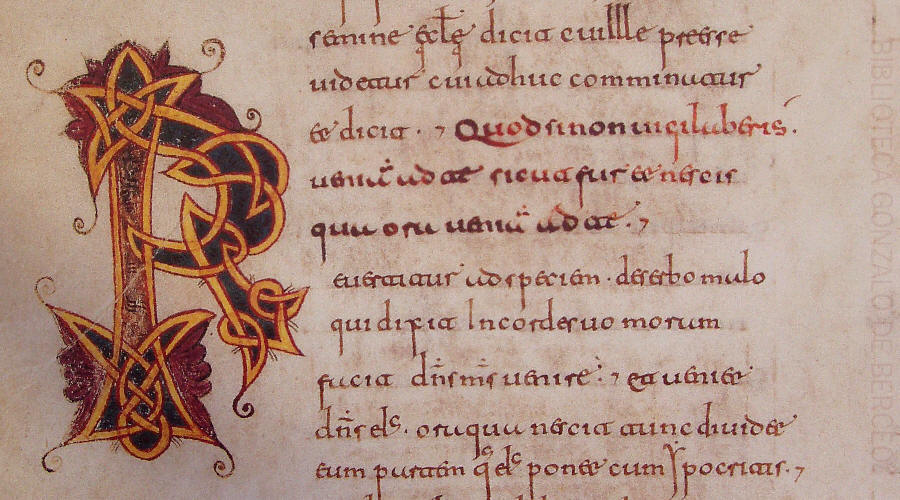 semine ęclę dicit cui ille preesse
uidetur cui adhuc comminatur
et dicit. ⁊ Quod si non uigilaberis.
ueniā ad te sicut fur et nescis
qua ora ueniā ad te.⁊
Reuertitur ad speciem. de serbo malo
qui dixit In corde suo moram
facit dn̄s ms̄ uenire: ⁊ et ueniet
dn̄s els. ora qua nescit tunc diuidet
eum partem q̄ els ponet cum ypocritas.⁊
BIBLIOTECA GONZALO DE BERCEO